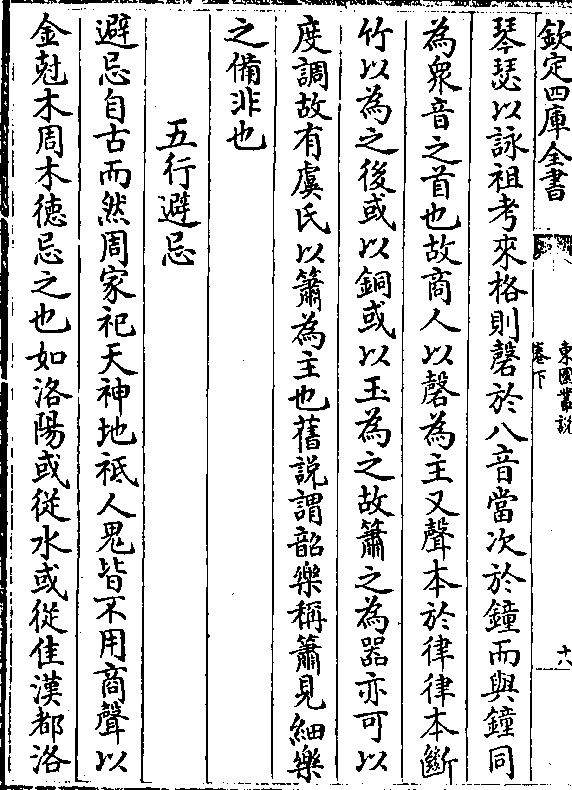 欽定四庫全書
東園叢說
卷下
十八
琴瑟以詠祖考來格則磬於八音當次於鐘而與鐘同
為衆音之首也故商人以磬為主又聲本於律律本斷
竹以為之後或以銅或以玉為之故簫之為器亦可以
度調故有虞氏以簫為主也舊説謂韶樂稱簫見細樂
之備非也
五行避忌
避忌自古而然周家祀天神地祗人鬼皆不用商聲以
金尅木周木德忌之也如洛陽或從水或從隹漢都洛